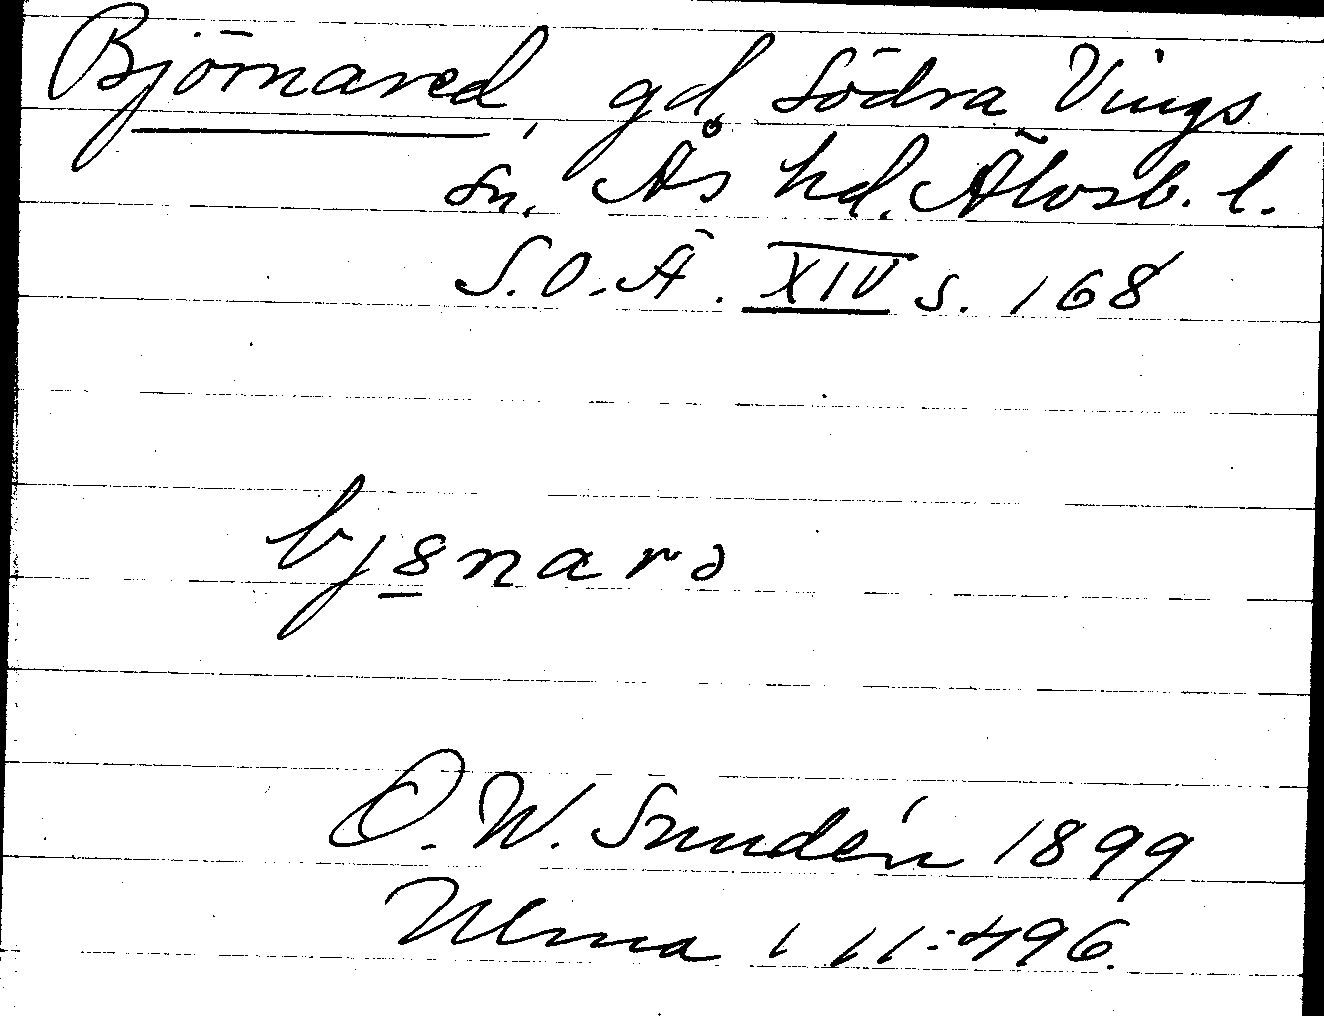 Björnared, gd, Södra Vings
sn, Ås hd. Älvsb. l.
S.O.Ä. XIV s. 168
bj8narə
O. W. Sundén 1899
Ulma 111:496.